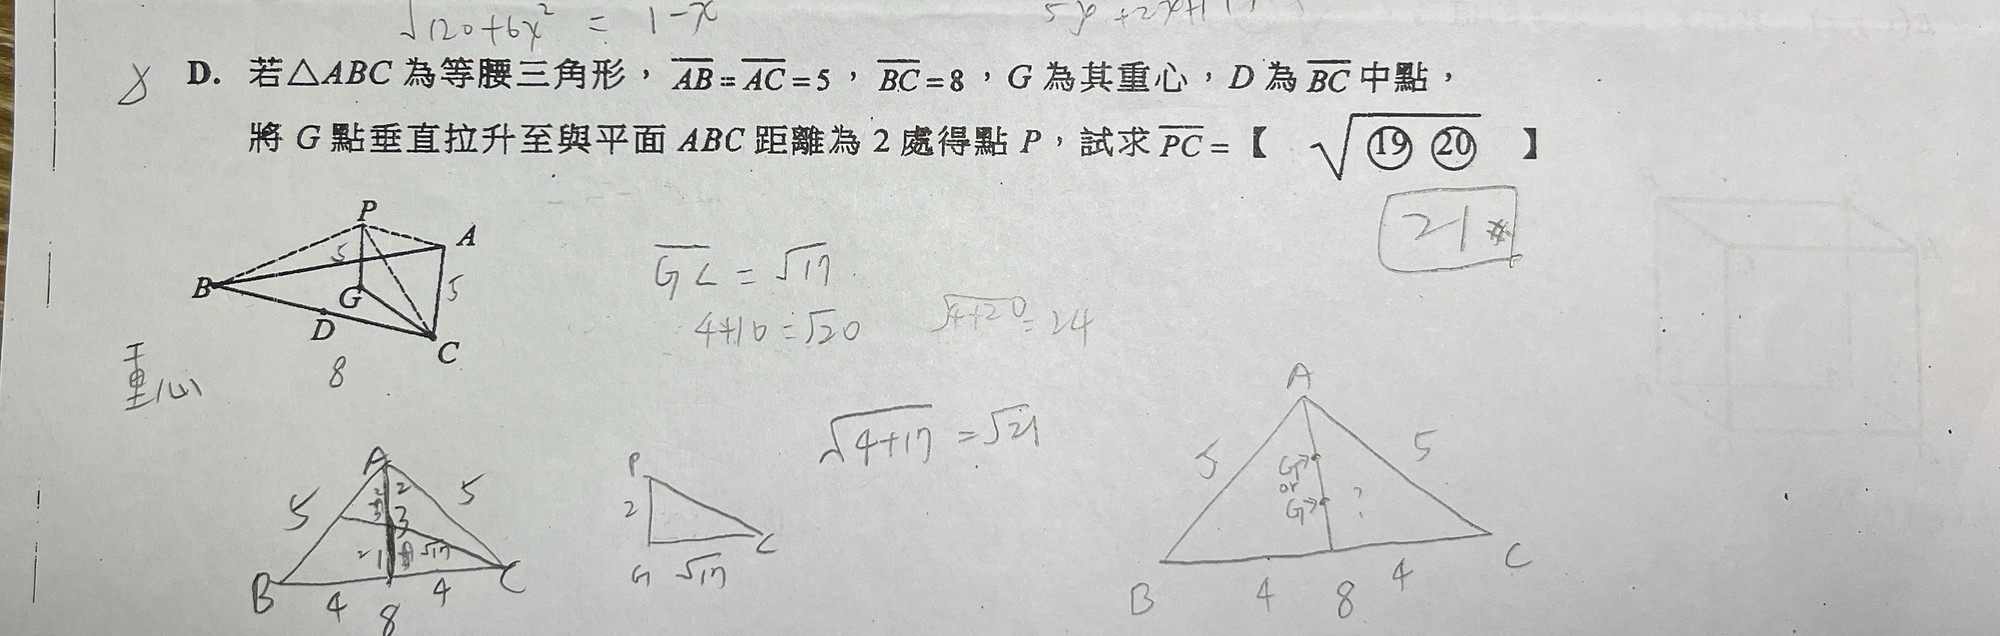 √120+6x² = 1-x
D. 若△ABC 為等腰三角形，AB=AC=5，BC=8，G 為其重心，D 為 BC 中點，
將 G 點垂直拉升至與平面 ABC 距離為 2 處得點 P，試求 PC=【 √⑲⑳ 】
21
P
A
5
B
G
5
D
C
8
重心
GC = √17
4+16=√20
√4+20=24
√4+17 = √21
A
5
2
5
3
1
√17
B
4
8
4
C
P
2
G
√17
C
A
5
5
G→
or
G→
?
B
4
8
4
C